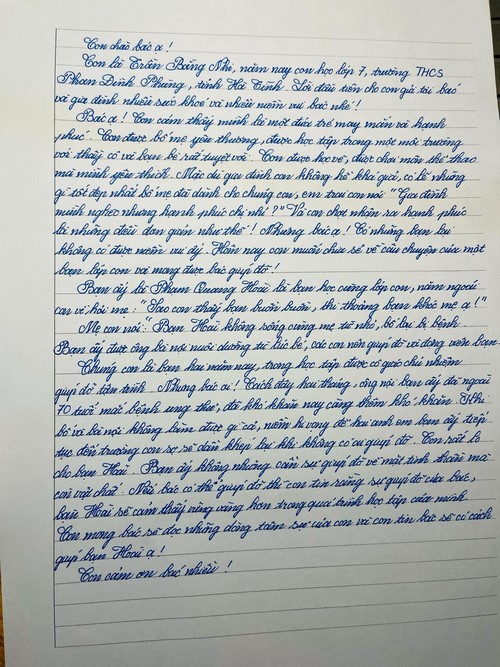 Con chào bác ạ!
Con là Trần Băng Nhi, năm nay con học lớp 7, trường THCS
Phan Đình Phùng, tỉnh Hà Tĩnh. Lời đầu tiên cho con gửi tới bác
và gia đình nhiều sức khoẻ và nhiều niềm vui bác nhé!
Bác ạ! Con cảm thấy mình là một đứa trẻ may mắn và hạnh
phúc. Con được bố mẹ yêu thương, được học tập trong một môi trường
với thầy cô và bạn bè rất tuyệt vời. Con được học vẽ, được chơi môn thể thao
mà mình yêu thích. Mặc dù gia đình con không hề khá giả, có lẽ những
gì tốt đẹp nhất bố mẹ đã dành cho chúng con, em trai con nói "Gia đình
mình nghèo nhưng hạnh phúc chị nhỉ?" Và con chợt nhận ra hạnh phúc
là những điều đơn giản như thế! Nhưng bác ạ! Có những bạn lại
không có được niềm vui ấy. Hôm nay con muốn chia sẻ về câu chuyện của một
bạn lớp con và mong được bác giúp đỡ!
Bạn ấy là Phan Quang Hoài là bạn học cùng lớp con, năm ngoái
con về hỏi mẹ: "Sao con thấy bạn buồn buồn, thi thoảng bạn khóc mẹ ạ!"
Mẹ con nói: Bạn Hoài không sống cùng mẹ từ nhỏ, bố lại bị bệnh.
Bạn ấy được ông bà nội nuôi dưỡng từ lúc bé, các con nên giúp đỡ và động viên bạn.
Chúng con là bạn hai năm nay, trong học tập được cô giáo chủ nhiệm
giúp đỡ tận tình. Nhưng bác ạ! Cách đây hai tháng, ông nội bạn ấy đã ngoài
70 tuổi mắc bệnh ung thư, đã khó khăn nay càng thêm khó khăn. Khi
bố và bà nội không làm được gì cả, niềm hi vọng để hai anh em bạn ấy tiếp
tục đến trường con sợ sẽ dần khép lại khi không có sự giúp đỡ. Con rất lo
cho bạn Hoài. Bạn ấy không những cần sự giúp đỡ về mặt tinh thần mà
còn vật chất. Nếu bác có thể giúp đỡ thì con tin rằng sự giúp đỡ của bác,
bạn Hoài sẽ cảm thấy vững vàng hơn trong quá trình học tập của mình.
Con mong bác sẽ đọc những dòng tâm sự của con và con tin bác sẽ có cách
giúp bạn Hoài ạ!
Con cảm ơn bác nhiều!